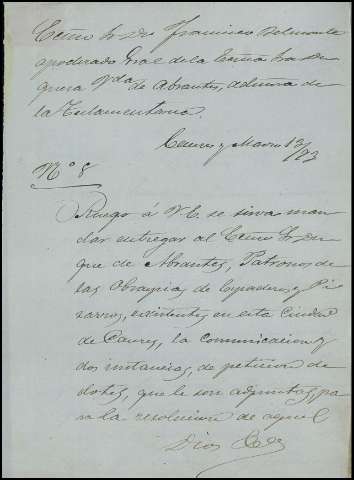 Excmo Sr Dn Francisco Belmonte
apoderado Gral de la Excma Sra Du
quesa Vda de Abrantes, admora de
la Testamentaria.
Caceres y Marzo 13/83
Nº 8
Ruego á V.E. se sirva man
dar entregar al Excmo Sr Du
que de Abrantes, Patrono de
las Obras pias de Ovando y Pi
zarro, existentes en esta Ciudad
de Caceres, la comunicacion y
dos instancias, de peticion de
dotes, que le son adjuntas, pa
ra la resolucion de aquel
Dios &